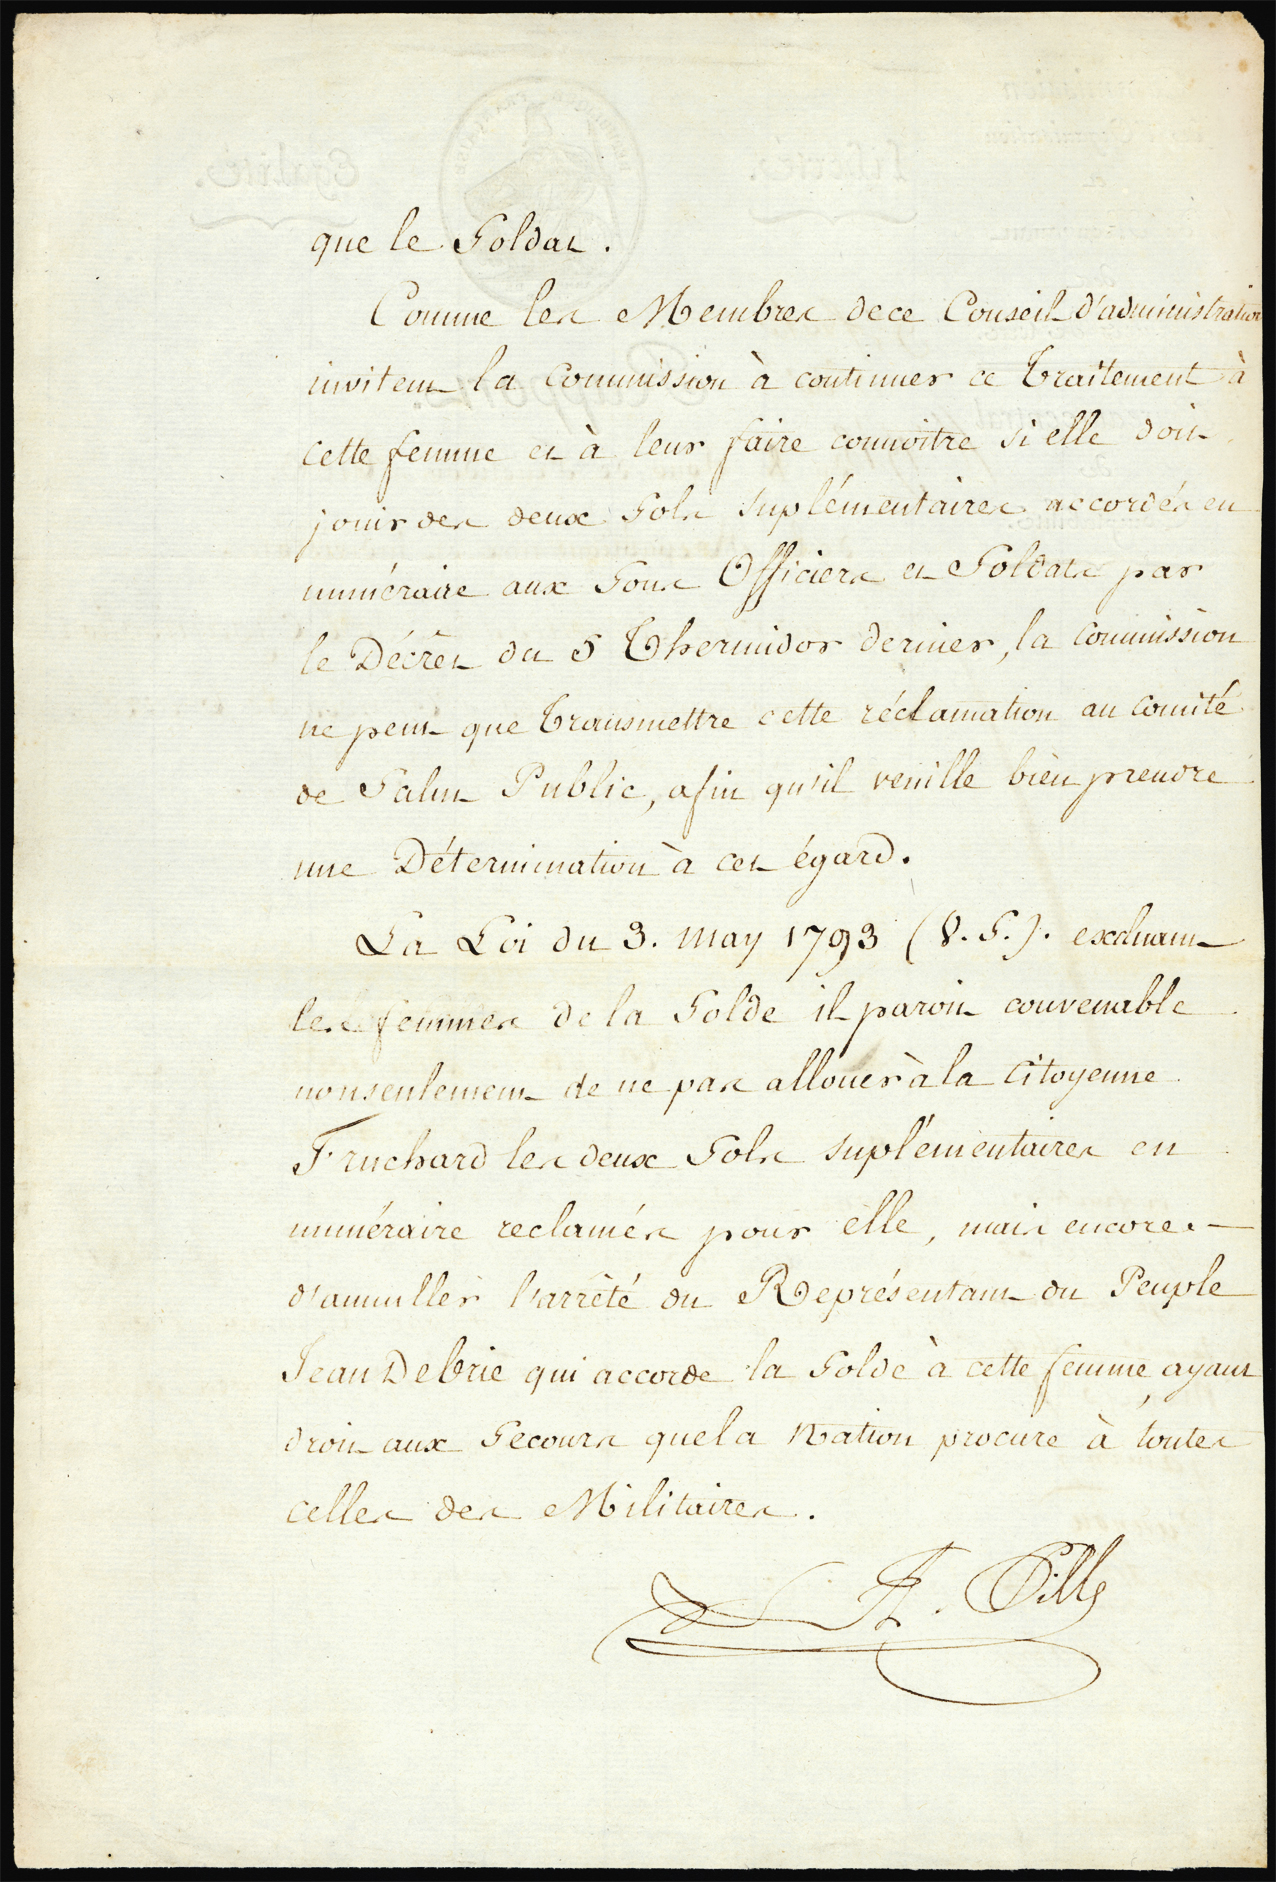 que le Soldat.
Comme les Membres de ce Conseil d'administration
invitent la Commission à continuer ce Traitement à
cette femme et à leur faire connoitre si elle doit
jouir des deux Sols suplémentaires accordés en
numéraire aux Sous Officiers et Soldats par
le Décret du 5 Thermidor dernier, la Commission
ne peut que Transmettre cette réclamation au Comité
de Salut Public, afin qu'il veuille bien prendre
une Détermination à cet égard.
La Loi du 3. May 1793 (V. S.). excluant
les femmes de la Solde il paroit convenable
nonseulement de ne pas allouer à la Citoyenne
Fruchard les deux Sols suplémentaires en
numéraire reclamés pour elle, mais encore.—
d'annuller l'arrêté du Représentant du Peuple
Jean Debrie qui accorde la Solde à cette femme, ayant
droit aux Secours que la Nation procure à toutes
celles des Militaires.
A. Pille
Égalité.
Liberté.
Rapport.